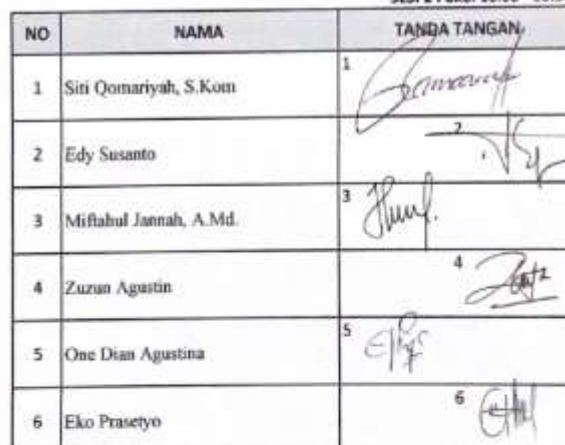 NO NAMA TANDA TANGAN
1 Siti Qomariyah, S.Kom 1
2 Edy Susanto 2
3 Miftahul Jannah, A.Md. 3
4 Zuzun Agustin 4
5 One Dian Agustina 5
6 Eko Prasetyo 6